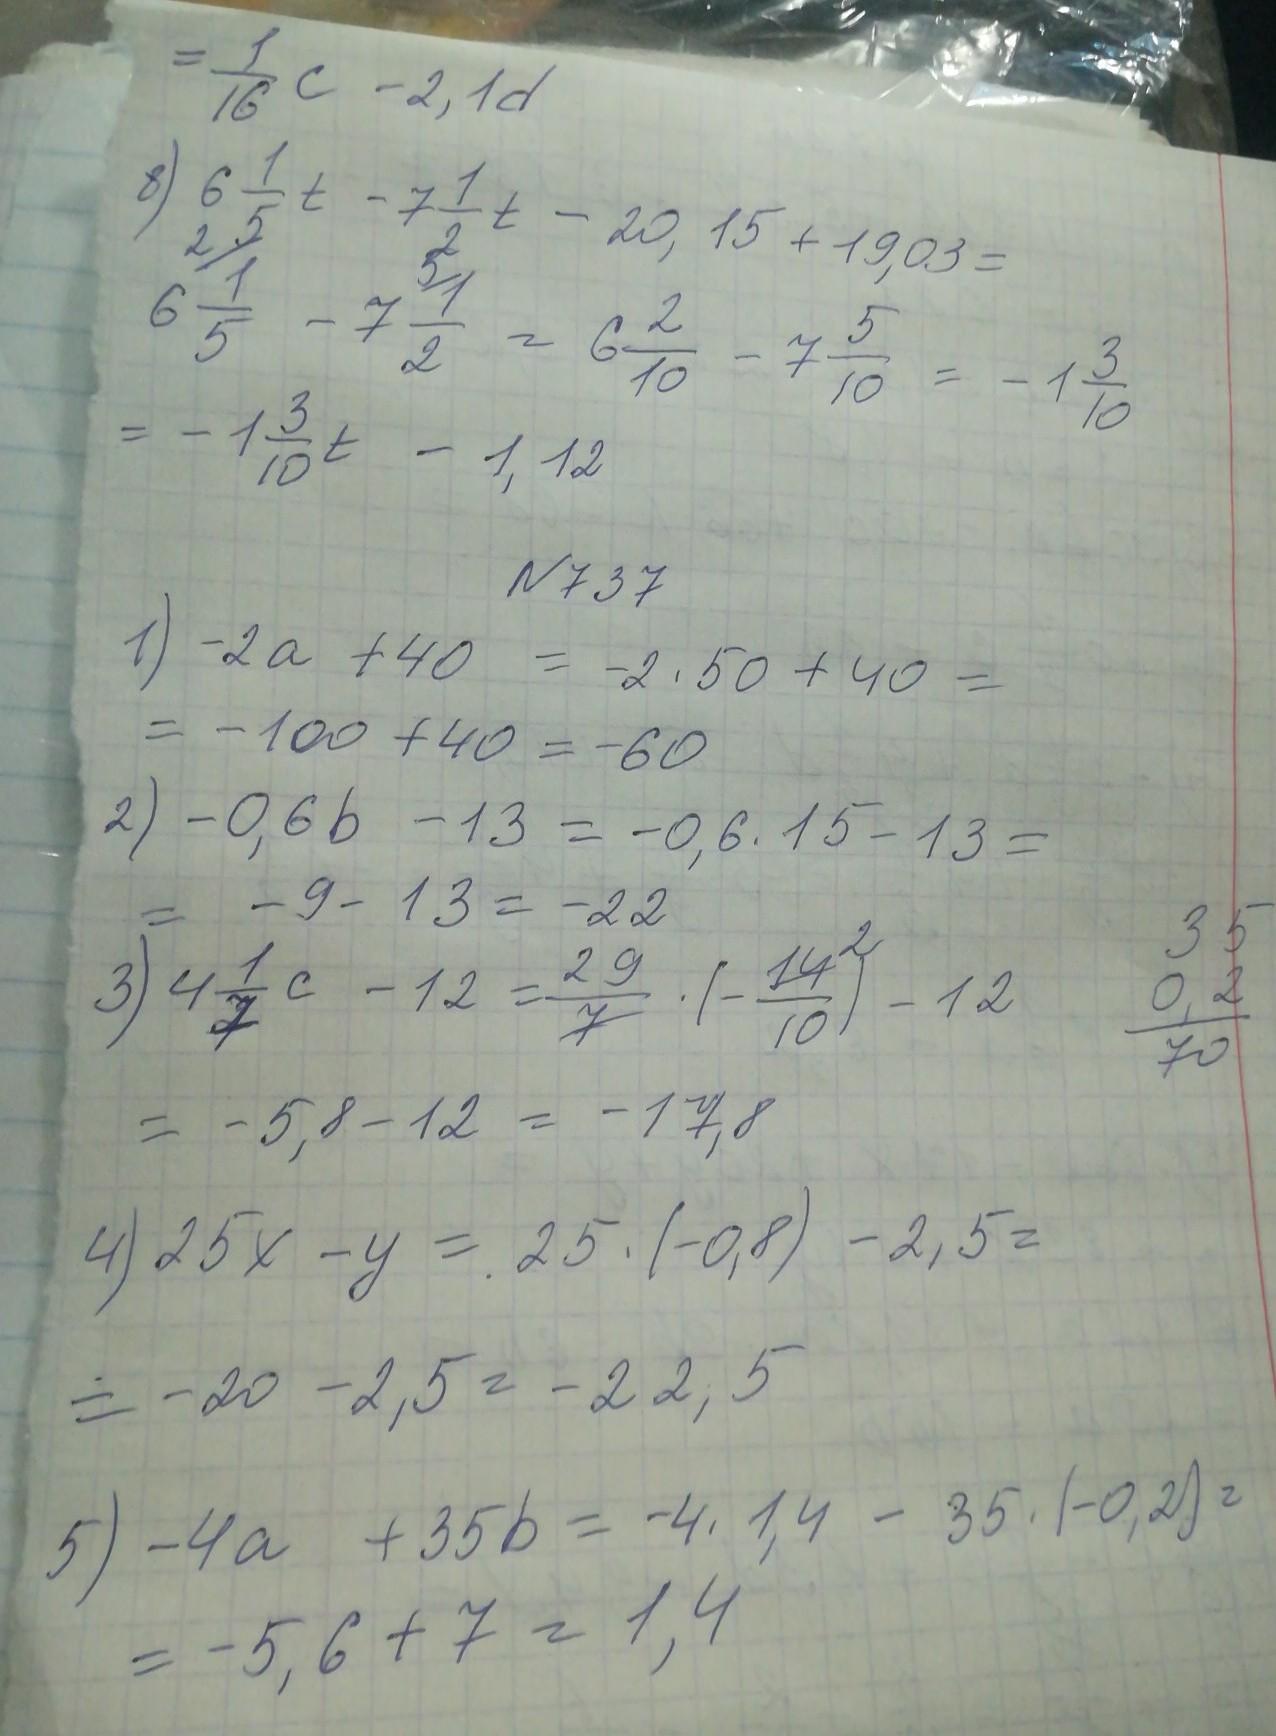 = 1/16 c - 2,1d
8) 6 1/5 t - 7 1/2 t - 20,15 + 19,03 =
6 1/5 - 7 1/2 = 6 2/10 - 7 5/10 = -1 3/10
= -1 3/10 t - 1,12
N737
1) -2a + 40 = -2·50 + 40 =
= -100 + 40 = -60
2) -0,6b - 13 = -0,6·15 - 13 =
= -9 - 13 = -22
3) 4 1/7 c - 12 = 29/7 · (- 14/10) 2 - 12
35
0,2
70
= -5,8 - 12 = -17,8
4) 25x - y = 25·(-0,8) - 2,5 =
= -20 - 2,5 = -22,5
5) -4a + 35b = -4·1,4 - 35·(-0,2) =
= -5,6 + 7 = 1,4